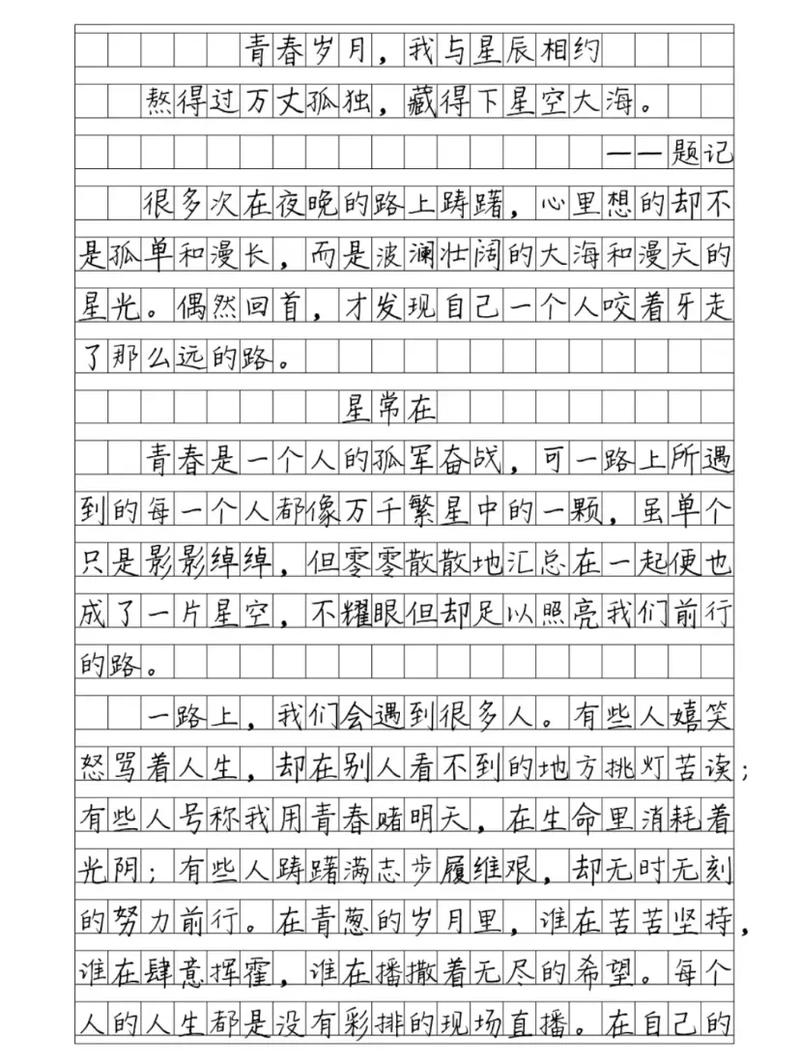 青春岁月，我与星辰相约
熬得过万丈孤独，藏得下星空大海。
——题记
很多次在夜晚的路上踌躇，心里想的却不
是孤单和漫长，而是波澜壮阔的大海和漫天的
星光。偶然回首，才发现自己一个人咬着牙走
了那么远的路。
星常在
青春是一个人的孤军奋战，可一路上所遇
到的每一个人都像万千繁星中的一颗，虽单个
只是影影绰绰，但零零散散地汇总在一起便也
成了一片星空，不耀眼但却足以照亮我们前行
的路。
一路上，我们会遇到很多人。有些人嬉笑
怒骂着人生，却在别人看不到的地方挑灯苦读；
有些人号称我用青春赌明天，在生命里消耗着
光阴；有些人踌躇满志步履维艰，却无时无刻
的努力前行。在青葱的岁月里，谁在苦苦坚持，
谁在肆意挥霍，谁在播撒着无尽的希望。每个
人的人生都是没有彩排的现场直播。在自己的